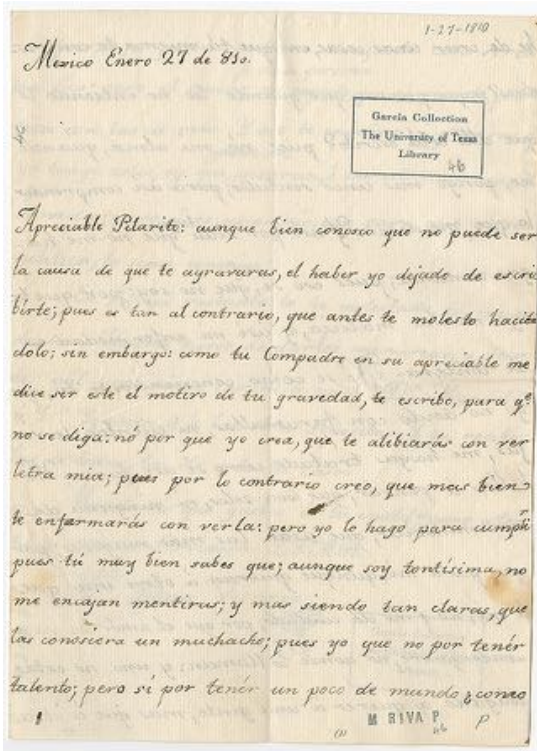 1-27-1810
Mexico Enero 27 de 810.
García Collection
The University of Texas
Library
46
Apreciable Pilarito: aunque bien conosco que no puede ser
la causa de que te agravaras, el haber yo dejado de escri
birte; pues es tan al contrario, que antes te molesto hacien
dolo; sin embargo: como tu Compadre en su apreciable me
dice ser este el motivo de tu gravedad, te escribo, para qe.
no se diga: nó por que yo crea, que te alibiarás con ver
letra mia; pues por lo contrario creo, que mas bien
te enfermarás con verla: pero yo lo hago para cumplir
pues tú muy bien sabes que; aunque soy tontísima, no
me encajan mentiras; y mas siendo tan claras, que
las consiera un muchacho; pues yo que no por tenér
talento; pero sí por tenér un poco de mundo
(1)
M RIVA P.
46
P